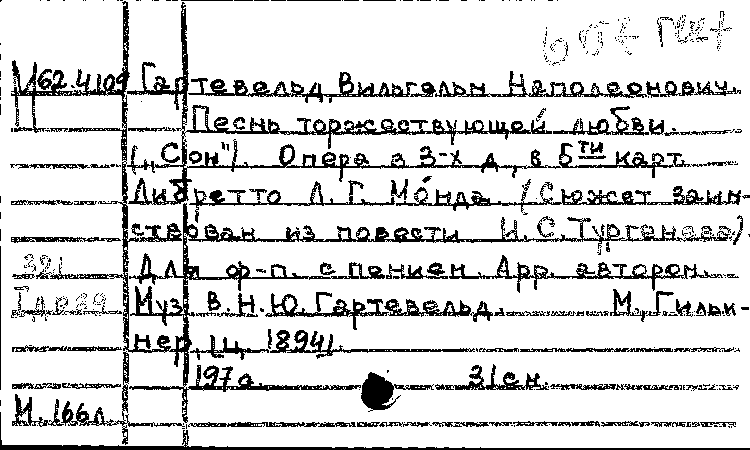 М62.4109 Гартевельд, Вильгельм Наполеонович.
П Песнь торжествующей любви.
(„Сон"). Опера в 3-х д., в 5ти карт.
Либретто Л. Г. Мо́нда. (Сюжет заим-
ствован из повести И. С. Тургенева).
321 Для ф-п. с пением. Арр. автором.
Муз. В. Н. Ю. Гартевельд. М., Гильк-
нер, ц. 1894].
197 с. 31 см.
М. 166л